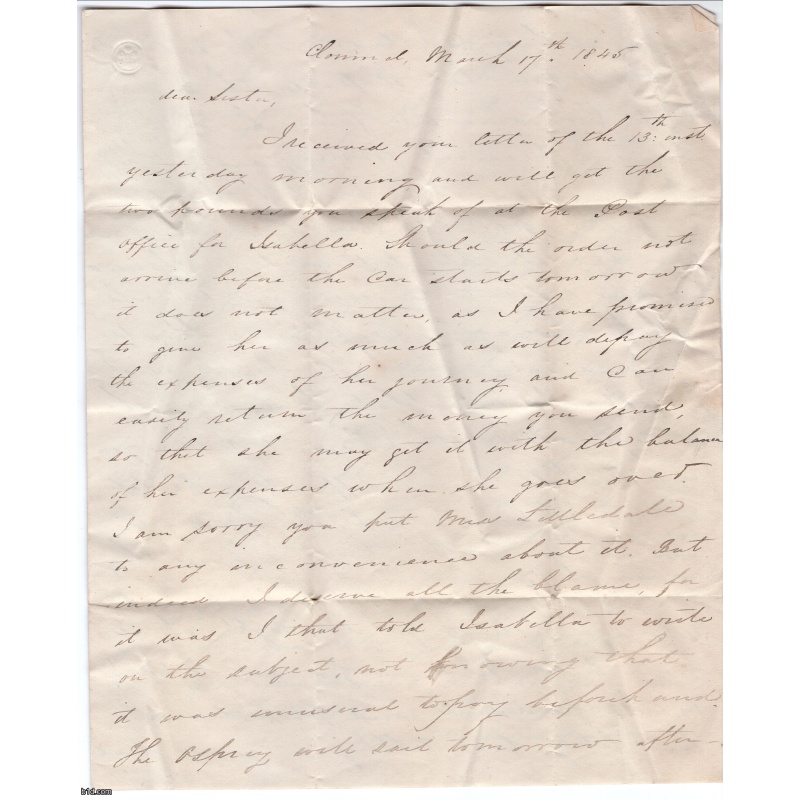 Clonmel, March 17th. 1845
dear Sister,
I received your letter of the 13th: inst.
yesterday morning and will get the
two pounds you speak of at the Post
office for Isabella. Should the order not
arrive before the Car starts tomorrow
it does not matter, as I have promised
to give her as much as will defray
the expenses of her journey and can
easily return the money you send,
so that she may get it with the balance
of her expenses when she goes over.
I am sorry you put Miss Littledale
to any inconvenience about it. But
indeed I deserve all the blame, for
it was I that told Isabella to write
on the subject, not knowing that
it was unusual to pay beforehand.
The Osprey will sail tomorrow after-
b1d.com